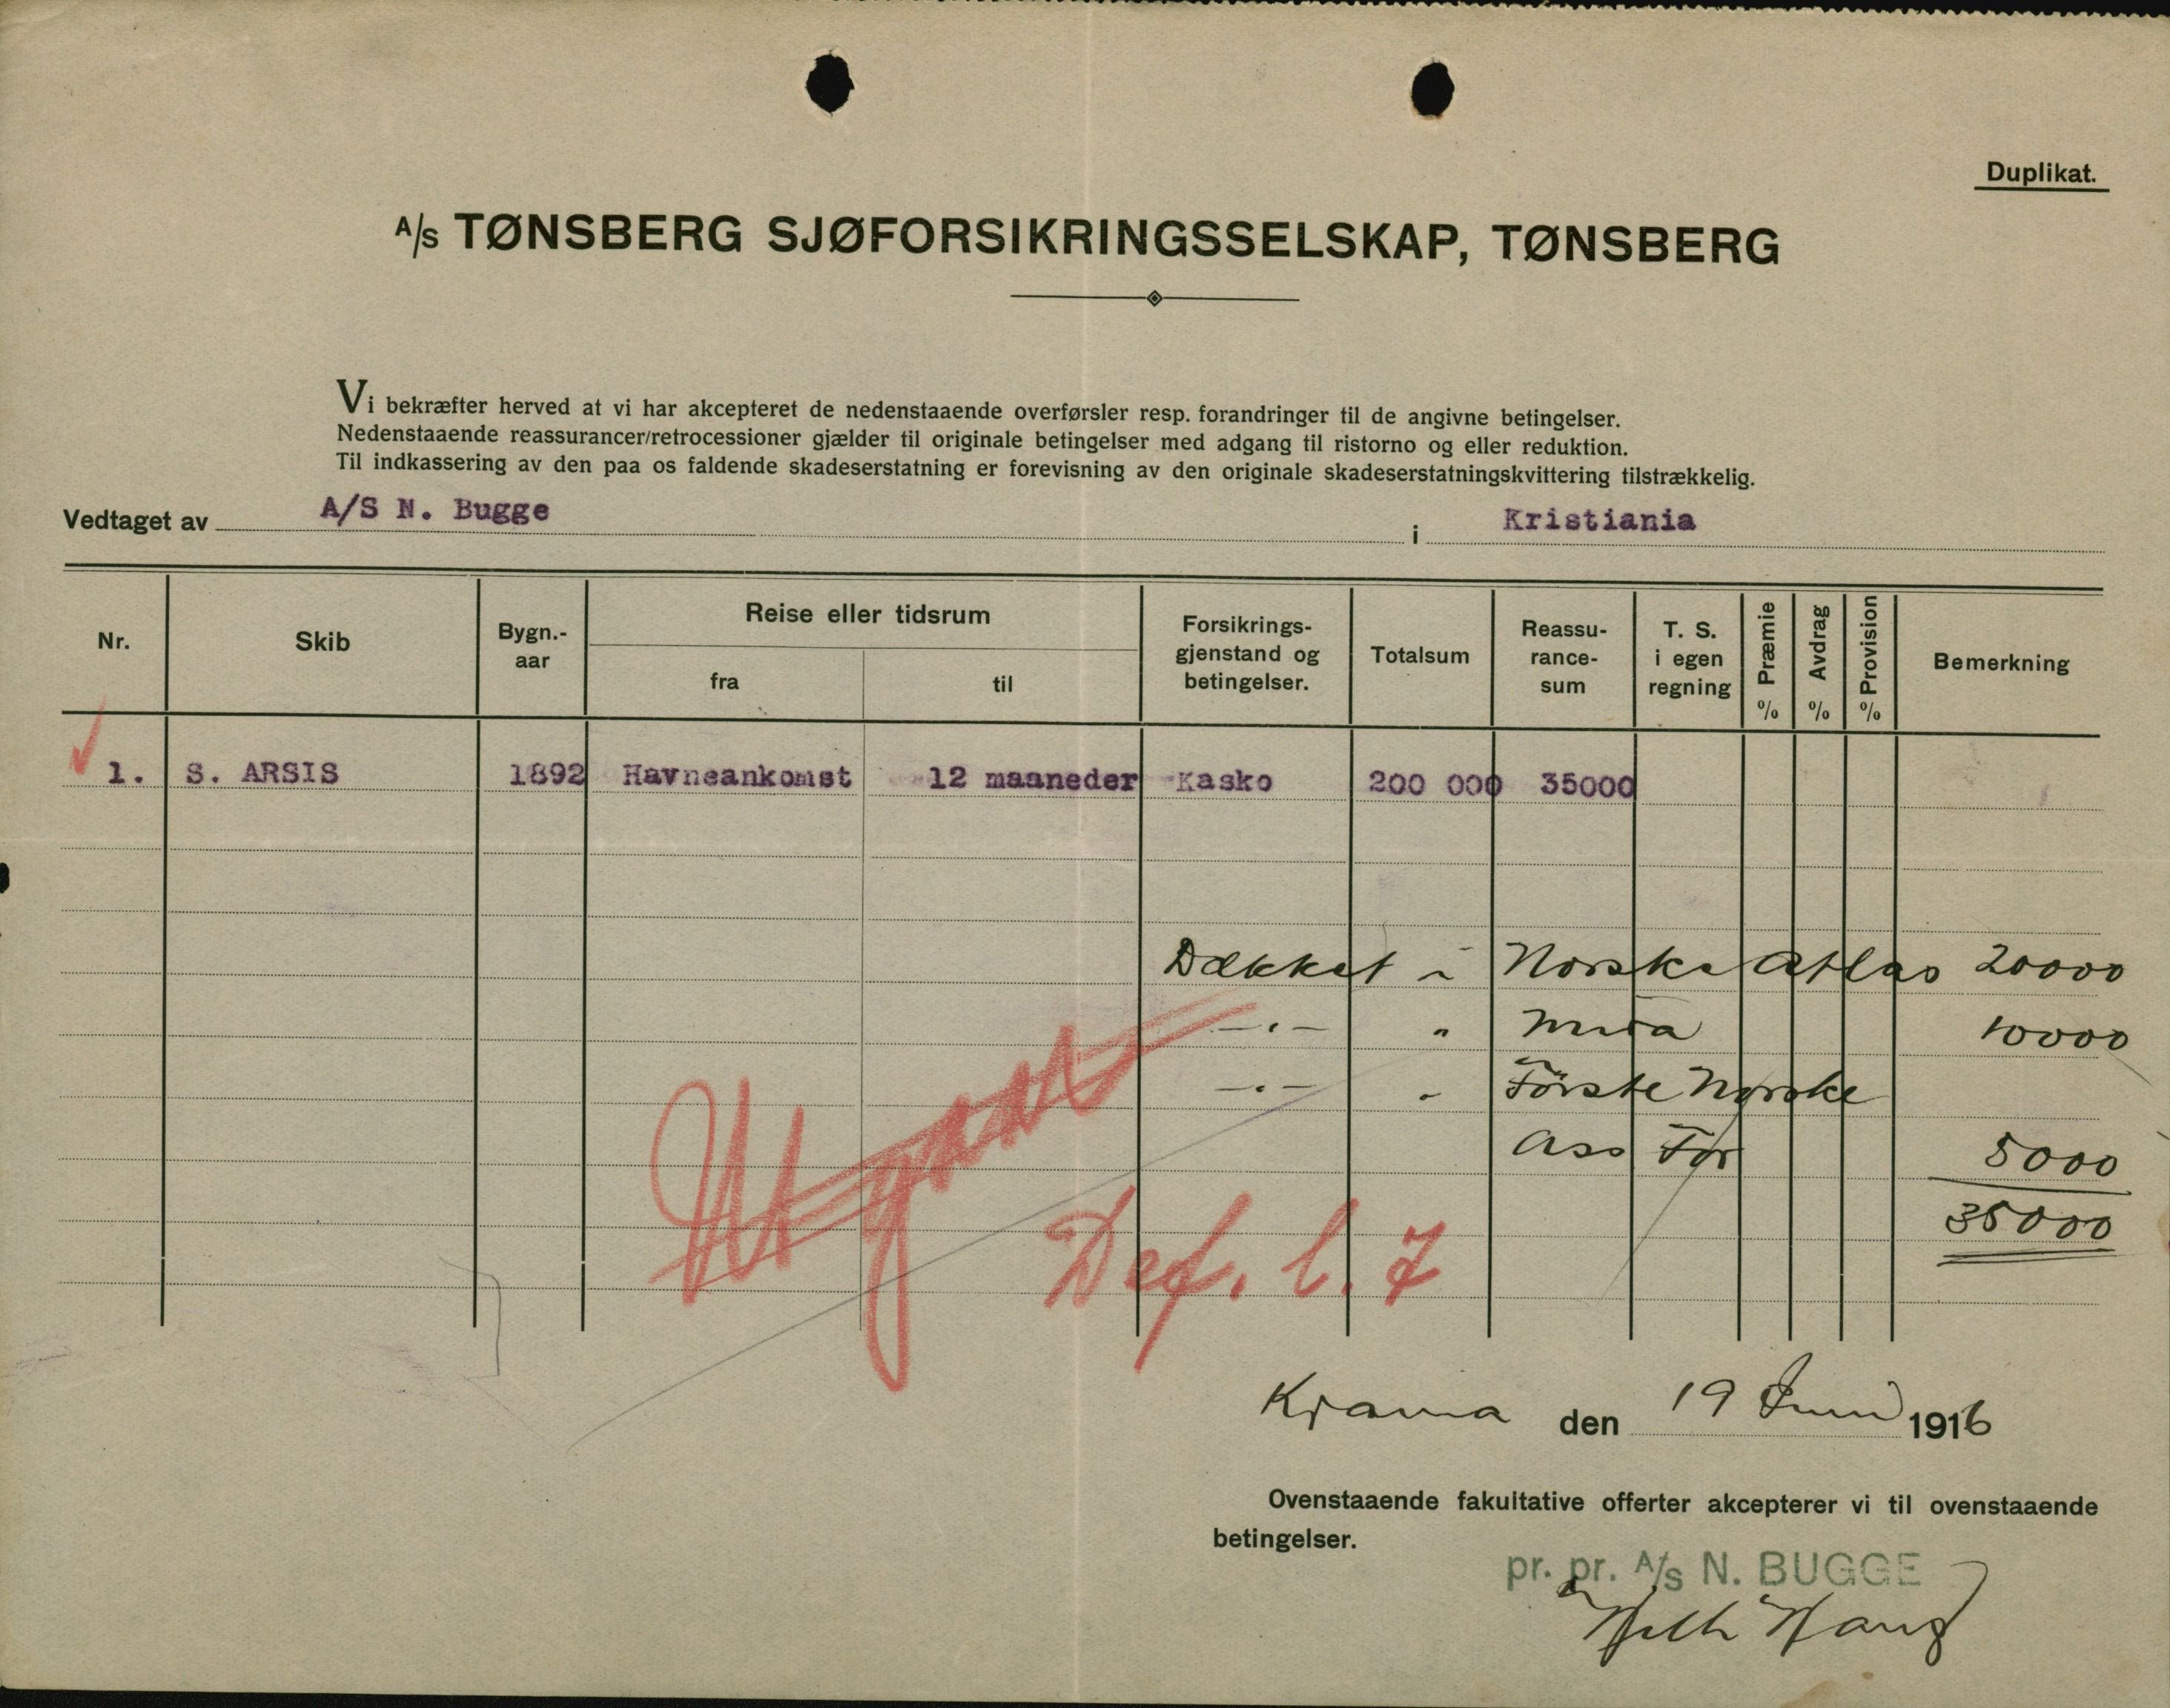 Duplikat.
A/S TØNSBERG SJØFORSIKRINGSSELSKAP, TØNSBERG
Vi bekræfter herved at vi har akcepteret de nedenstaaende overførsler resp. forandringer til de angivne betingelser.
Nedenstaaende reassurancer/retrocessioner gjælder til originale betingelser med adgang til ristorno og eller reduktion.
Til indkassering av den paa os faldende skadeserstatning er forevisning av den originale skadeserstatningskvittering tilstrækkelig.
Vedtaget av A/S N. Bugge i Kristiania
Nr. Skib Bygn.-aar Reise eller tidsrum fra til Forsikrings-gjenstand og betingelser. Totalsum Reassu-rance-sum T. S. i egen regning Præmie % Avdrag % Provision % Bemerkning
1. S. ARSIS 1892 Havneankomst 12 maaneder Kasko 200 000 35000
Dækket i Norske Atlas 20000
—„— " 10000
—„— " Förste Norske
Ass For 5000
35000
Utgaat
Def. l. 7
Krania den 19 Juni 1916
Ovenstaaende fakultative offerter akcepterer vi til ovenstaaende
betingelser.
pr. pr. A/S N. BUGGE